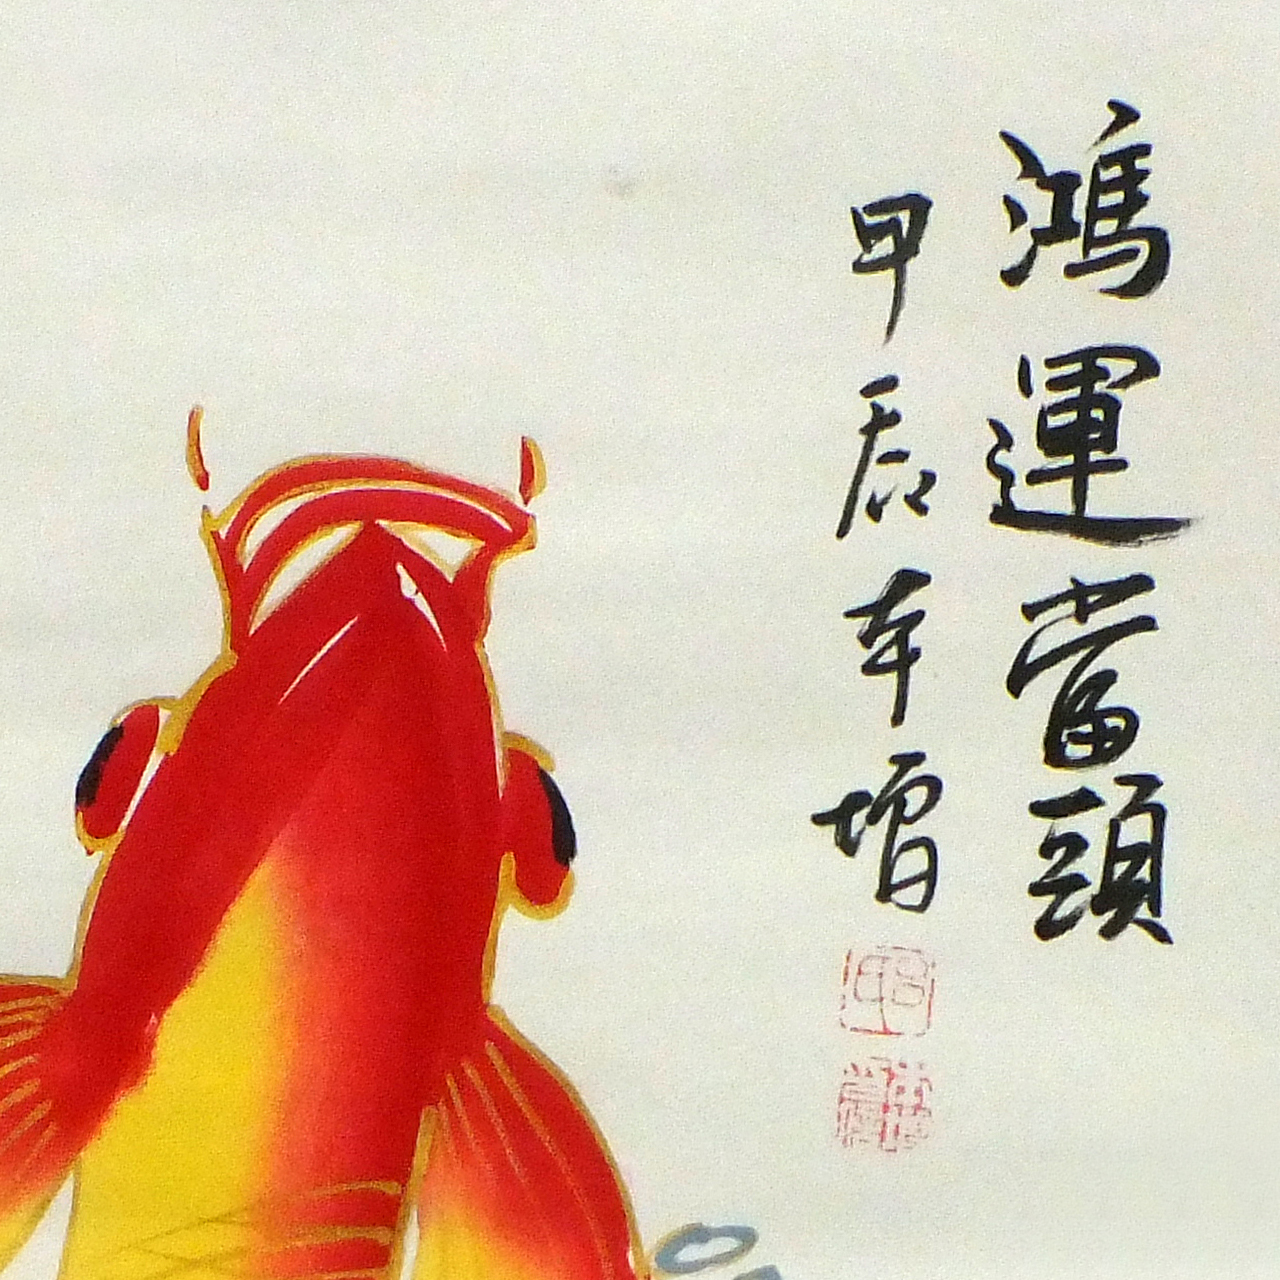 鴻運當頭
甲辰年增